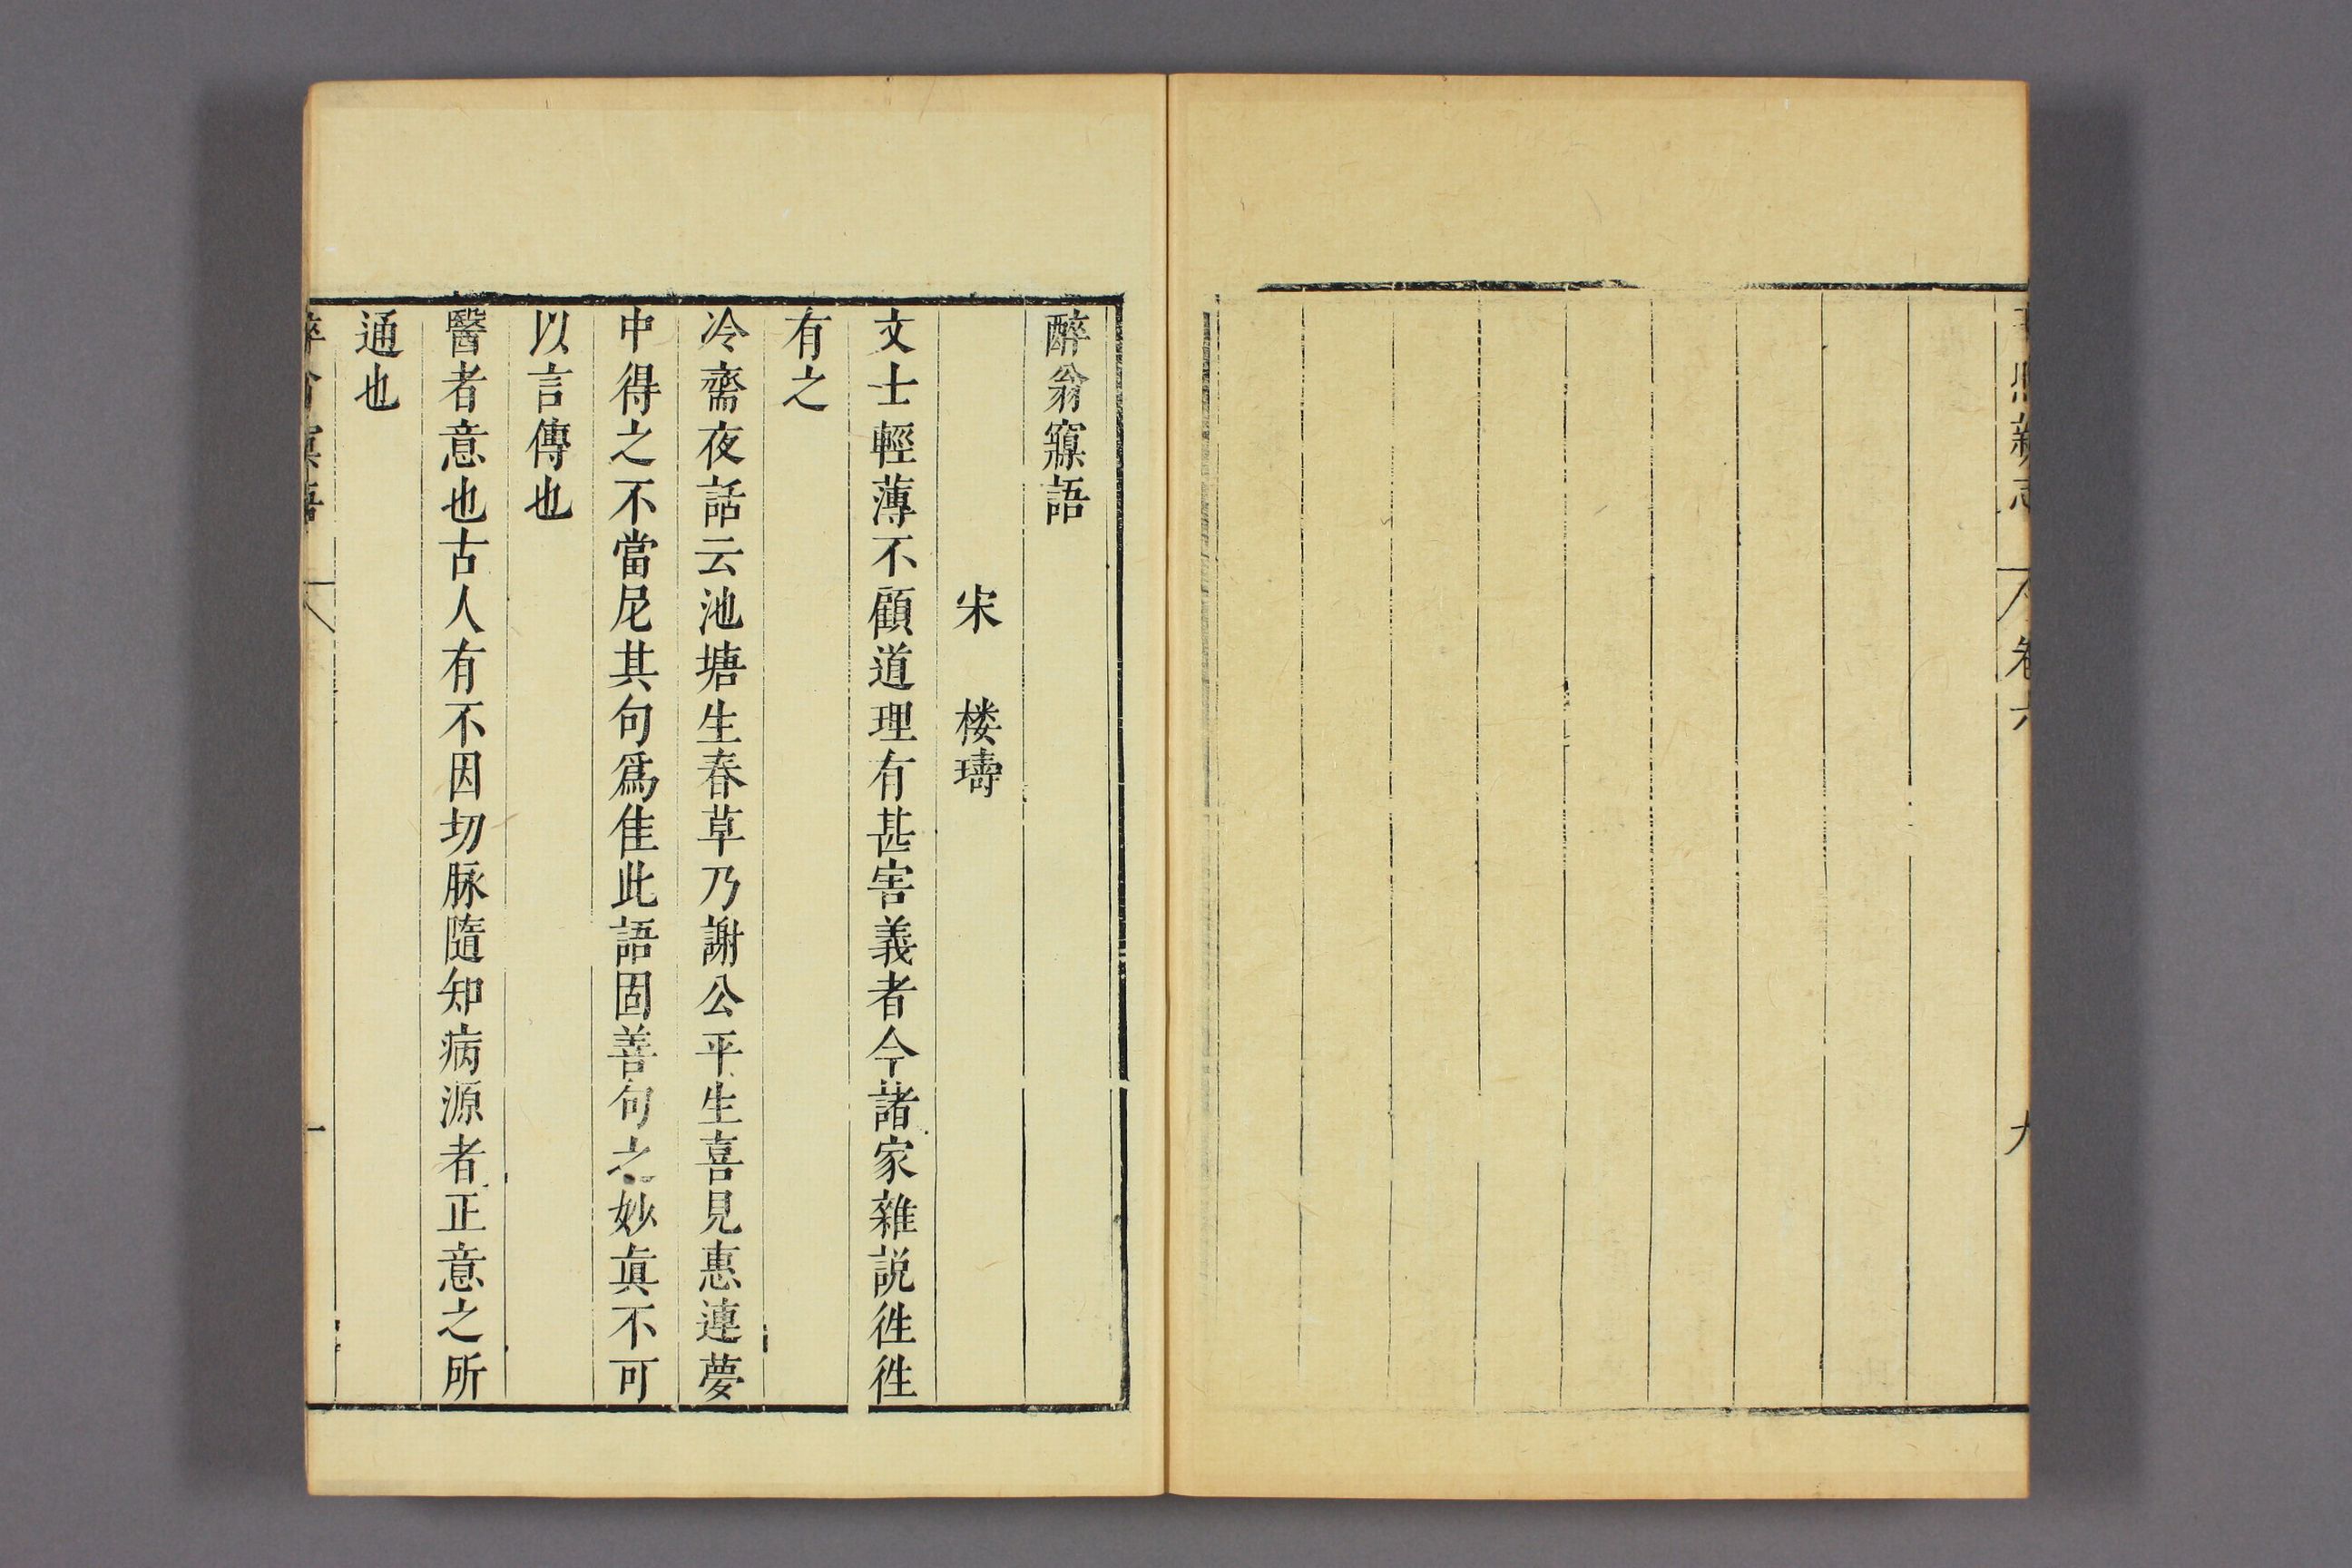 照新志
卷六
九
醉翁寱語
宋 楼璹
文士輕薄不顧道理有甚害義者今諸家雜說徃徃
有之
冷齋夜話云池塘生春草乃謝公平生喜見惠連夢
中得之不當尼其句爲佳此語固善句之妙眞不可
以言傳也
醫者意也古人有不因切脉隨知病源者正意之所
通也
一